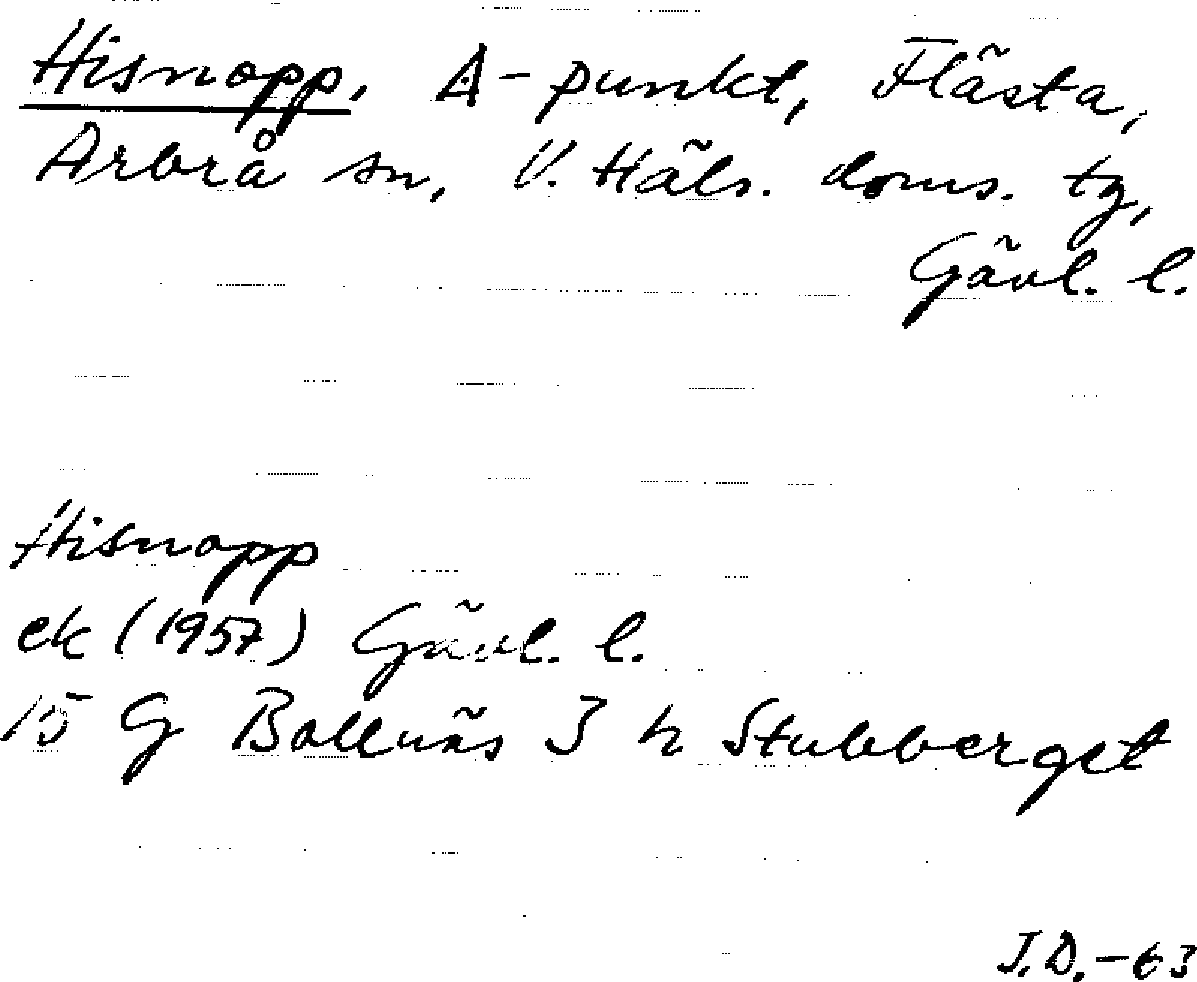 Hisnopp, A-punkt, Flästa,
Arbrå sn, V. Häls. doms. tg,
Gävl. l.
Hisnopp
ek (1957) Gävl. l.
15 G Bollnäs 3 h Stubberget
J.D.-63